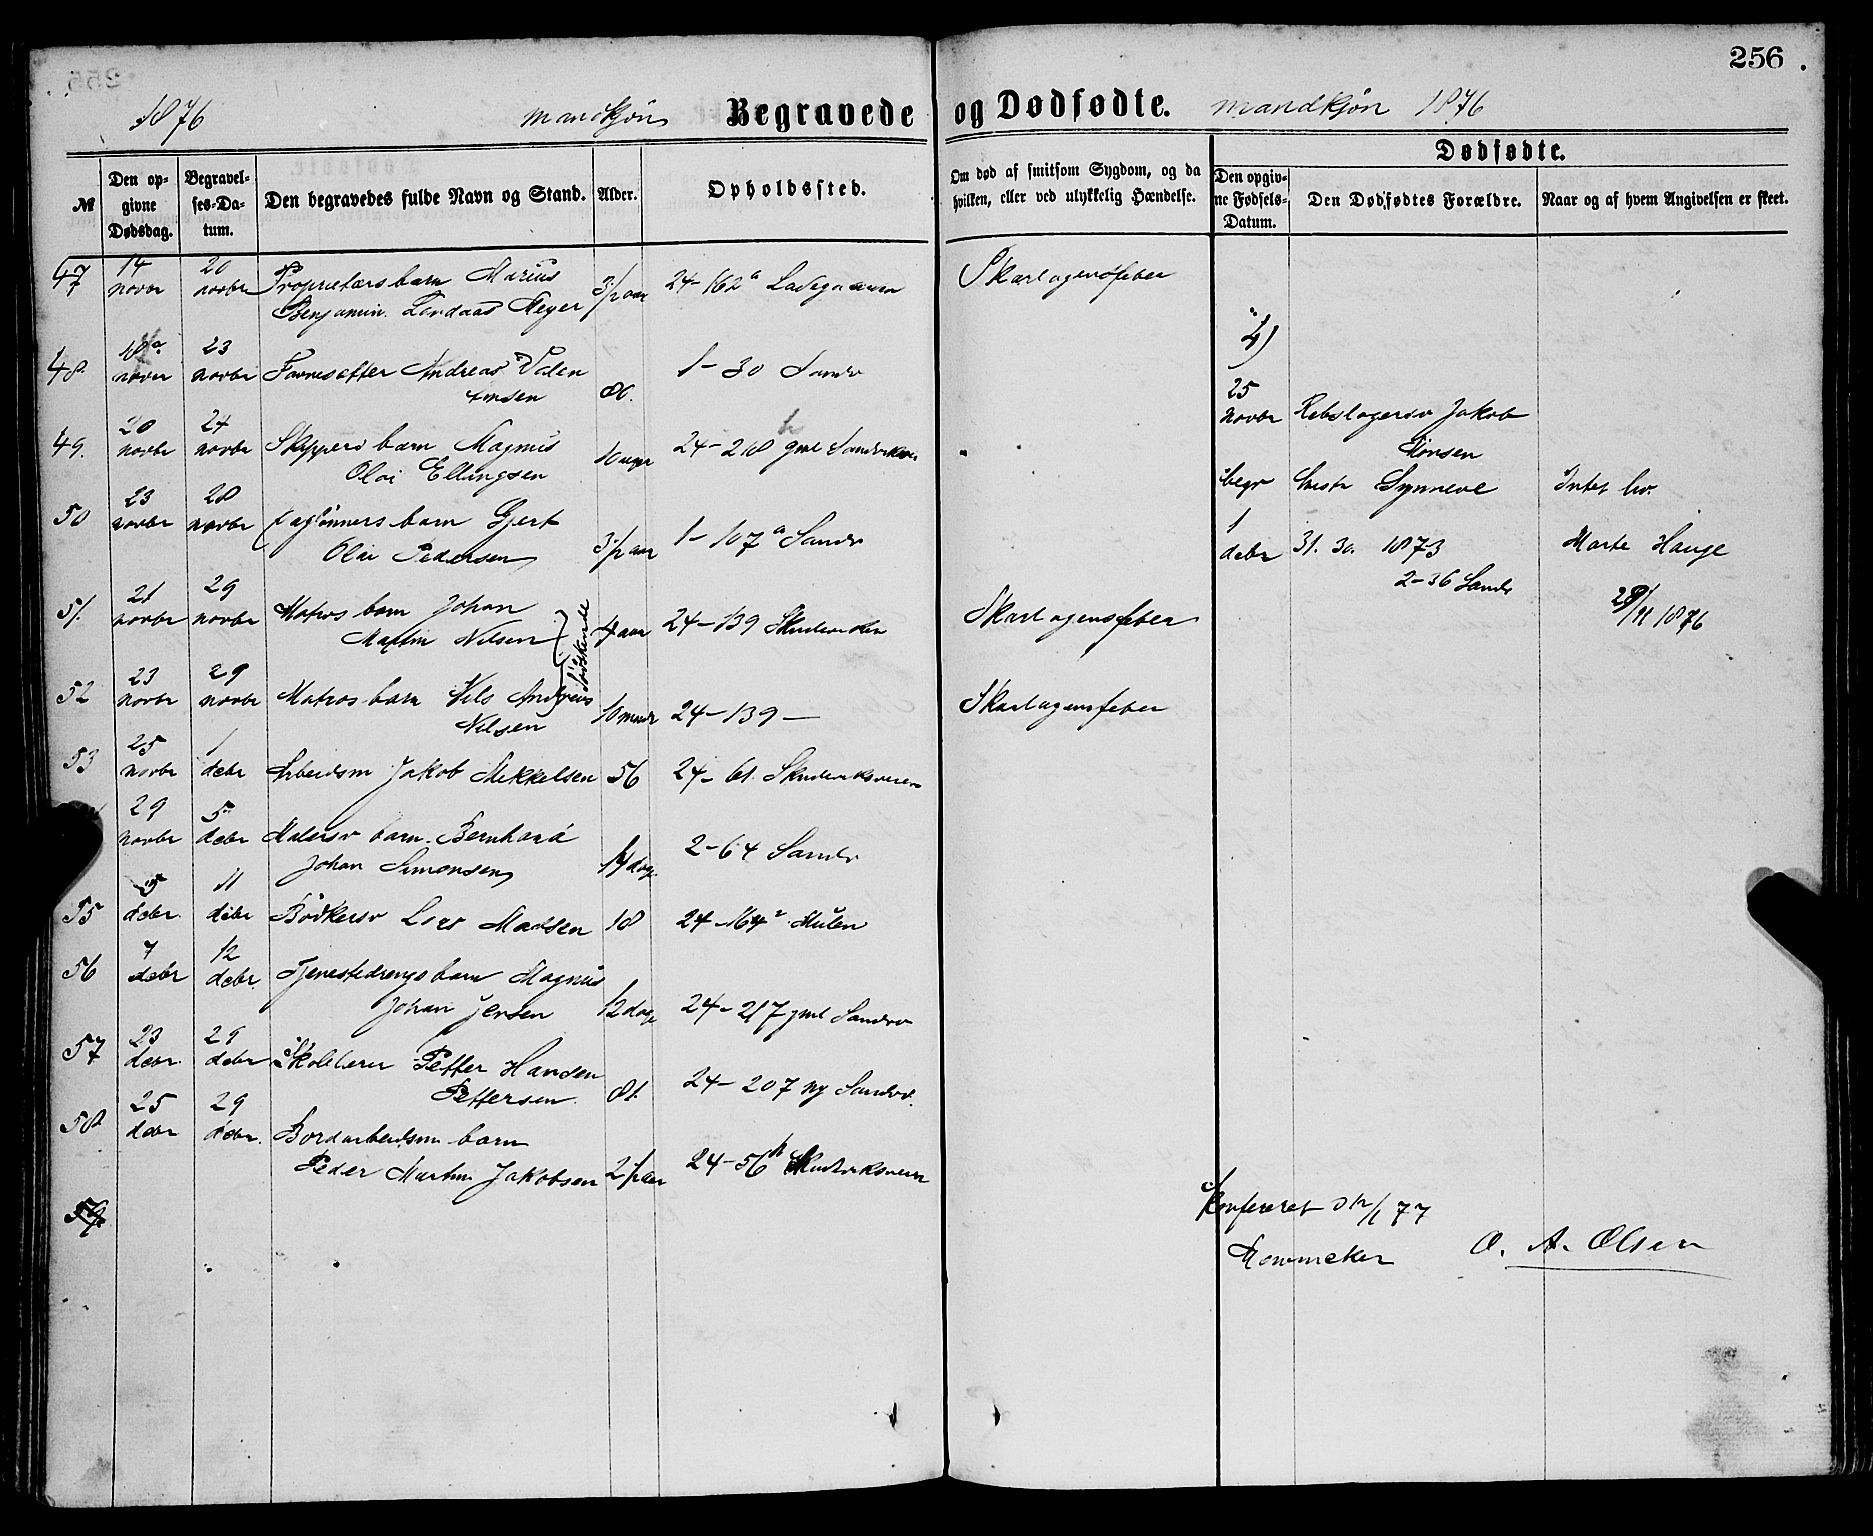 256
1876 mandkjøn Begravede og Dødfødte. mandkjøn 1876
№
Den op-
givne
Dødsdag.
Begravel-
ses-Da-
tum.
Den begravedes fulde Navn og Stand.
Alder.
Opholdssted.
Om død af smitsom Sygdom, og da
hvilken, eller ved ulykkelig Hændelse.
Dødfødte.
Den opgiv-
ne Fødsels-
Datum.
Den Dødfødtes Forældre.
Naar og af hvem Angivelsen er skeet.
47 14 novbr 20 novbr Proprietærs barn Marius
Benjamin Landaas Meyer 3 1/2 aar 24-162 a Ladegaarn Skarlagensfeber
48 18 novbr 23 novbr Andreas Valen
tinsen 80. 1-30 Sandv
49. 20 novbr 24 novbr Skippers barn Magnus
Olai Ellingsen 10 uger 24-218 gml Sandviksv
50 23 novbr 28 novbr Daglønners barn Gjert
Olai Pedersen 3 1/2 aar 1-107 a Sandv
51. 21 novbr 29 novbr Matros barn Johan
Martin Nilsen 4 aar 24-139 Skudeviken Skarlagensfeber
Sødskende
52 23 novbr 29 novbr Matros barn Nils Andreas
Nilsen 10 maar 24-139 — Skarlagensfeber
53 25 novbr 1 debr Arbeidsm Jakob Mikkelsen 56 24-61. Skudeviksveien
29 novbr 5 debr Malersv barn. Bernhard
Johan Simonsen 14 dag. 2-64 Sandv
55 5 debr. 11 debr Bødkersv Lars Madsen 18 24-164 a Mulen
56 7 debr 12 debr. Tjenestedrengs barn Magnus
Johan Jensen 12 dage 24-217 gml Sandvv
57 23 debr. 29 debr Skolelærer Petter Hansen
Pettersen. 81. 24-207 ny Sandvv.
58 25 debr 29 debr. Bordarbeidsm barn
Peder Martin Jakobsen 2 1/2 aar 24-56 b Skudeviksveien
59
4)
25
novbr Rebslagersv Jakob
Monsen
begr Synneve Intet liv.
1
debr 31. 30. 1873 Marte Hauge
2-36 Sandv
28/11 1876
Konfereret 3/1 77
O. A. Olsen